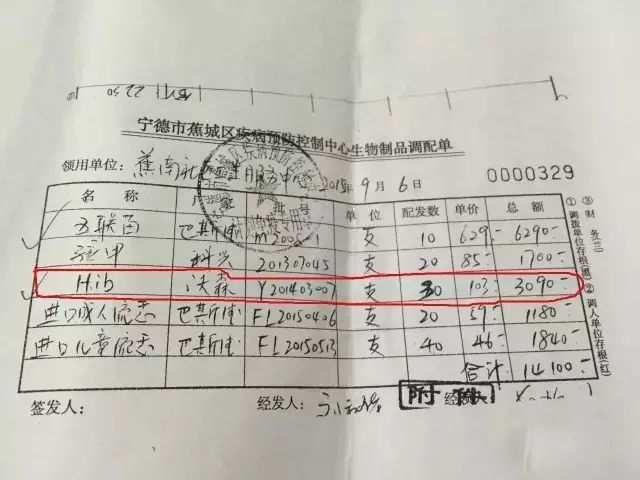 2250
宁德市蕉城区疾病预防控制中心生物制品调配单
领用单位：蕉南社区卫生服务中心 2015年9月6日 0000329
名称 厂家 批号 单位 配发数 单价 总额
五联苗 巴斯德 支 10 629- 6290-
科兴 201307045 支 20 85- 1700-
Hib 沃森 Y201403007 支 30 103- 3090-
进口成人流感 巴斯德 FL20150406 支 20 59- 1180-
进口儿童流感 巴斯德 FL20150513 支 40 46- 1840-
合计: 14100-
签发人： 经发人： 附件
①调拨单位存根(黑)
②调入单位存根(红)
③财务(兰)